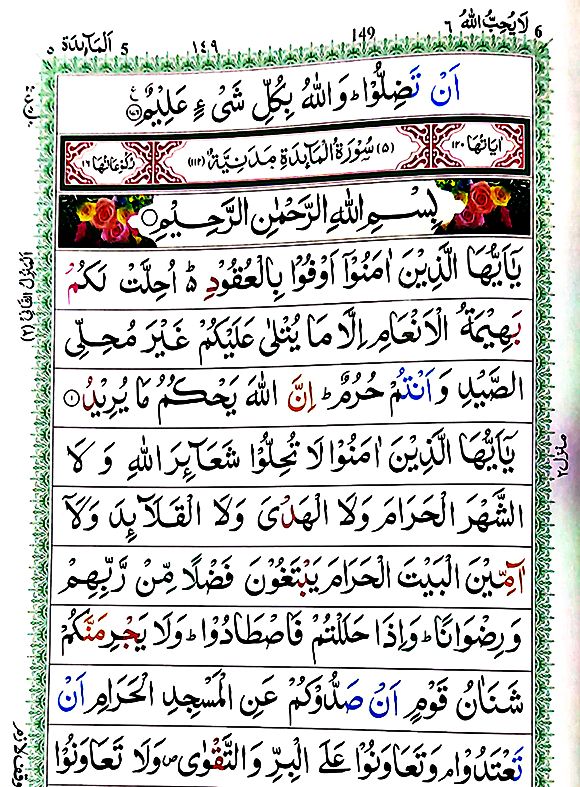 لَا يُحِبُّ اللهُ ٦ 6
149
١٤٩
اَلْمَآئِدَة ٥ 5
اَنْ تَضِلُّوْا ؕ وَاللهُ بِكُلِّ شَیْءٍ عَلِيْمٌ ﴿۱۷۶﴾
اٰيَاتُهَا ۱۲۰ (۵) سُوْرَةُ الْمَآئِدَةِ مَدَنِيَّةٌ (۱۱۲) رُكُوْعَاتُهَا ۱۶
بِسْمِ اللهِ الرَّحْمٰنِ الرَّحِيْمِ
يٰۤاَيُّهَا الَّذِيْنَ اٰمَنُوْۤا اَوْفُوْا بِالْعُقُوْدِ ؕ اُحِلَّتْ لَكُمْ
بَهِيْمَةُ الْاَنْعَامِ اِلَّا مَا يُتْلٰى عَلَيْكُمْ غَيْرَ مُحِلِّى
الصَّيْدِ وَاَنْتُمْ حُرُمٌ ؕ اِنَّ اللهَ يَحْكُمُ مَا يُرِيْدُ ﴿۱﴾
يٰۤاَيُّهَا الَّذِيْنَ اٰمَنُوْا لَا تُحِلُّوْا شَعَآئِرَ اللهِ وَ لَا
الشَّهْرَ الْحَرَامَ وَلَا الْهَدْىَ وَلَا الْقَلَآئِدَ وَلَاۤ
اٰۤمِّيْنَ الْبَيْتَ الْحَرَامَ يَبْتَغُوْنَ فَضْلًا مِّنْ رَّبِّهِمْ
وَرِضْوَانًا ؕ وَاِذَا حَلَلْتُمْ فَاصْطَادُوْا ؕ وَلَا يَجْرِمَنَّكُمْ
شَنَاٰنُ قَوْمٍ اَنْ صَدُّوْكُمْ عَنِ الْمَسْجِدِ الْحَرَامِ اَنْ
تَعْتَدُوْا ۘ وَتَعَاوَنُوْا عَلَى الْبِرِّ وَالتَّقْوٰى ۪ وَلَا تَعَاوَنُوْا
اَلْمَنْزِلُ الثَّانِیْ (۲)
منزل ۲
وقف لازم